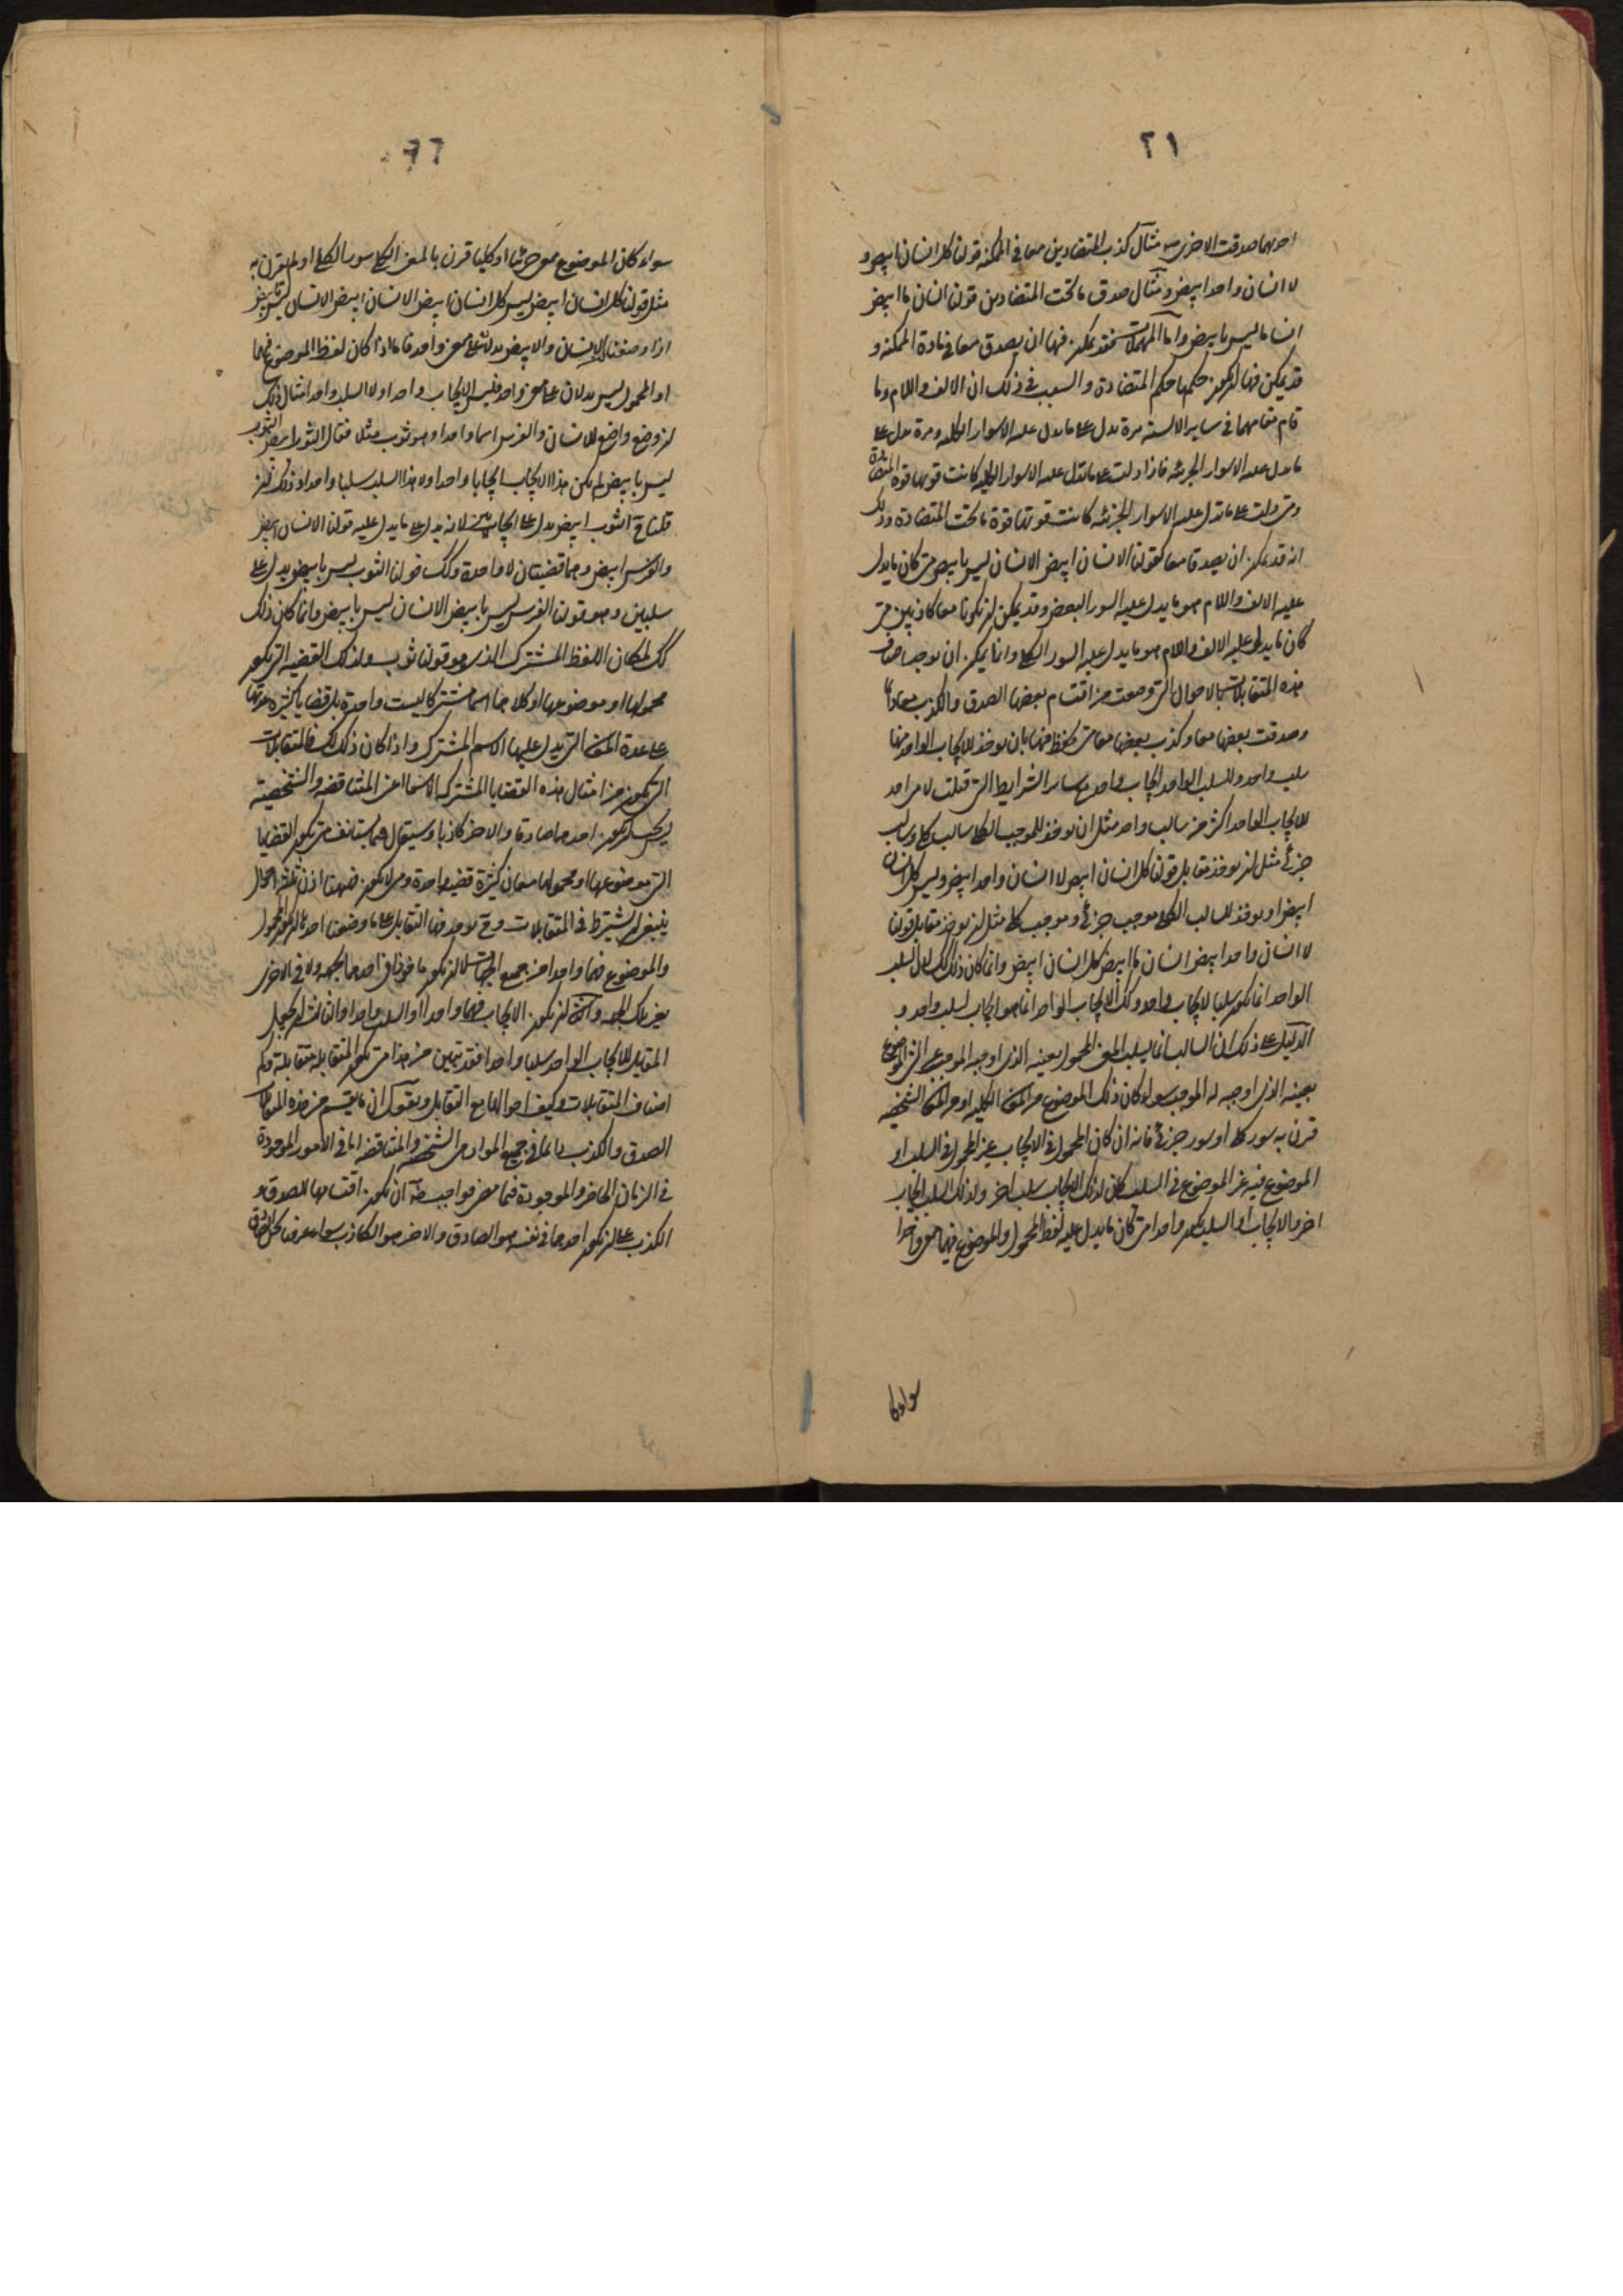 ٢١
احدیهما صدقت الاخری مثال کذب المتضادین معا فی الممکنة قولنا کل انسان ابیض و
لا انسان واحد ابیض ومثال صدق ما تحت المتضادین قولنا انسان ما ابیض
انسان ما لیس بابیض واما المهملات فقد یمکن فیها ان یصدق معا فی مادة الممکنة و
قد یمکن فیها ان یکون حکمها حکم المتضادة والسبب فی ذلک ان الالف واللام وما
قام مقامهما فی سایر الالسنة مرة یدل علی ما یدل علیه الاسوار الکلیة ومرة یدل علی
ما یدل علیه الاسوار الجزئیة فاذا دلت علی ما تدل علیه الاسوار الکلیة کانت قوتها قوة المتضادة
ومتی دلت علی ما تدل علیه الاسوار الجزئیة کانت قوتها قوة ما تحت المتضادة وذلک
انه قد یمکن ان یصدقا معا کقولنا الانسان ابیض الانسان لیس بابیض متی کان ما یدل
علیه الالف واللام هو ما یدل علیه السور البعض وقد یمکن ان یکونا معا کاذبین متی
کان ما یدل علیه الالف واللام هو ما یدل علیه السور الکلی وانما یمکن ان یوجد اصناف
هذه المتقابلات بالاحوال التی وصفت من اقتسام بعضها الصدق والکذب معا دائما
وصدقت بعضها معا وکذب بعضها معا متی تحفظ فیها بان یوخذ للایجاب الواحد منها
سلب واحد وللسلب الواحد ایجاب واحد مع سایر الشرایط التی قیلت لا متی اخذ
للایجاب الواحد اکثر من سالب واحد مثل ان یوخذ للموجب الکلی سالب کلی وسالب
جزئی مثل ان یوخذ مقابل قولنا کل انسان ابیض لا انسان واحد ابیض ولیس کل انسان
ابیض او یوخذ للسالب الکلی موجب جزئی وموجب کلی مثل ان یوخذ مقابل قولنا
لا انسان واحد ابیض انسان ما ابیض کل انسان ابیض وانما کان ذلک کک لان السلب
الواحد انما یکون سلبا لایجاب واحد وکک الایجاب الواحد انما هو ایجاب لسلب واحد و
الدلیل علی ذلک ان السالب انما یسلب المعنی المحمول بعینه الذی اوجبه الموجب عن الشئ الموضوع
بعینه الذی اوجبه له الموجب سواء کان ذلک الموضوع من المعانی الکلیة او من المعانی الشخصیة
قرن به سور کلی او سور جزئی فانه ان کان المحمول فی الایجاب غیر المحمول فی السلب او
الموضوع فیه غیر الموضوع فی السلب کان لذلک الایجاب سلب اخر ولذلک السلب ایجاب
اخر والایجاب او السلب یکون واحدا متی کان ما یدل علیه لفظ المحمول والموضوع فیها معنی واحدا
سواء کا
٢٢
سواء کان الموضوع معنی جزئیا او کلیا قرن بالمعنی الکلی سور الکلی او لم یقرن به
مثل قولنا کل انسان ابیض لیس کل انسان ابیض الانسان ابیض الانسان لیس بابیض
اذا وصفنا ان الانسان والابیض یدلان علی معنی واحد فاما اذا کان لفظ الموضوع فیهما
او المحمول لیس یدلان علی معنی واحد فلیس الایجاب واحدا ولا السلب واحدا مثال ذلک
ان وضع واضع للانسان والفرس اسما واحدا وهو ثوب مثلا فقال الثوب ابیض الثوب
لیس بابیض لم یکن هذا الایجاب ایجابا واحدا ولا هذا السلب سلبا واحدا وذلک ان
قلنا ح الثوب ابیض یدل علی ایجابین لانه یدل علی ما یدل علیه قولنا الانسان ابیض
والفرس ابیض وهما قضیتان لا واحدة وکک قولنا الثوب لیس بابیض یدل علی
سلبین وهو قولنا الفرس لیس بابیض الانسان لیس بابیض وانما کان ذلک
کک لمکان اللفظ المشترک الذی هو قولنا ثوب ولذلک القضیة التی یکون
محمولها او موضوعها او کلاهما اسما مشترکا لیست واحدة بل قضایا کثیرة عدتها
علی عدة المعانی التی یدل علیها الاسم المشترک واذا کان ذلک کک فالمتقابلات
التی تکون من امثال هذه القضایا المشترکة الاسما اعنی المتناقضة والشخصیة
لیس یجب ان یکون احدهما صادقا والاخر کاذبا وسیقال فیما یستانف متی یکون القضایا
التی موضوعها او محمولها معان کثیرة قضیة واحدة ومتی لا یکون فههنا اذن ثلثة احوال
ینبغی ان یشترط فی المتقابلات وح یوجد فیها التقابل علی ما وصفنا احدها ان یکون المحمول
والموضوع فیهما واحدا من جمیع الجهات لا ان یکون ماخوذا فی احدهما بجهة ولا فی الاخری
بغیر تلک الجهة والثانی ان یکون الایجاب فیهما واحدا او السلب واحدا والثالث ان یجعل
المقابل للایجاب الواحد سلبا واحدا فقد تبین من هذا متی یکون المتقابلة متقابلة وکم
اصناف المتقابلات وکیف احوالها مع التقابل ونقول ان ما یقتسم من هذه المتقابلات
الصدق والکذب دائما فی جمیع المواد هی الشخصیة والمتناقضة اما فی الامور الموجودة
فی الزمان الحاضر والموجودة فیما مضی فواجب ضرورة ان یکون اقتسامها للصدق و
الکذب علی ان یکون احدهما فی نفسه هو الصادق والاخر هو الکاذب سواء عرفنا نحن الصادق